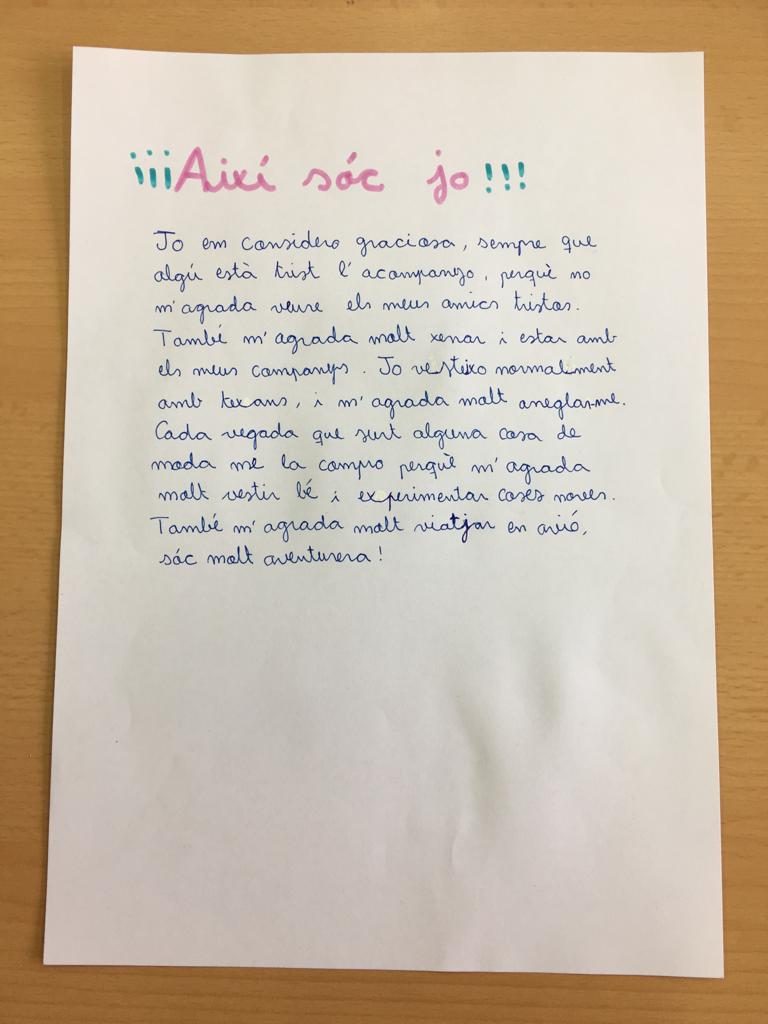 ¡¡¡Així sóc jo!!!
Jo em considero graciosa, sempre que
algú està trist l'acompanyo, perquè no
m'agrada veure els meus amics tristos.
També m'agrada molt xenar i estar amb
els meus companys. Jo vesteixo normalment
amb texans, i m'agrada molt arreglar-me.
Cada vegada que surt alguna cosa de
moda me la compro perquè m'agrada
molt vestir bé i experimentar coses noves.
També m'agrada molt viatjar en avió,
sóc molt aventurera!